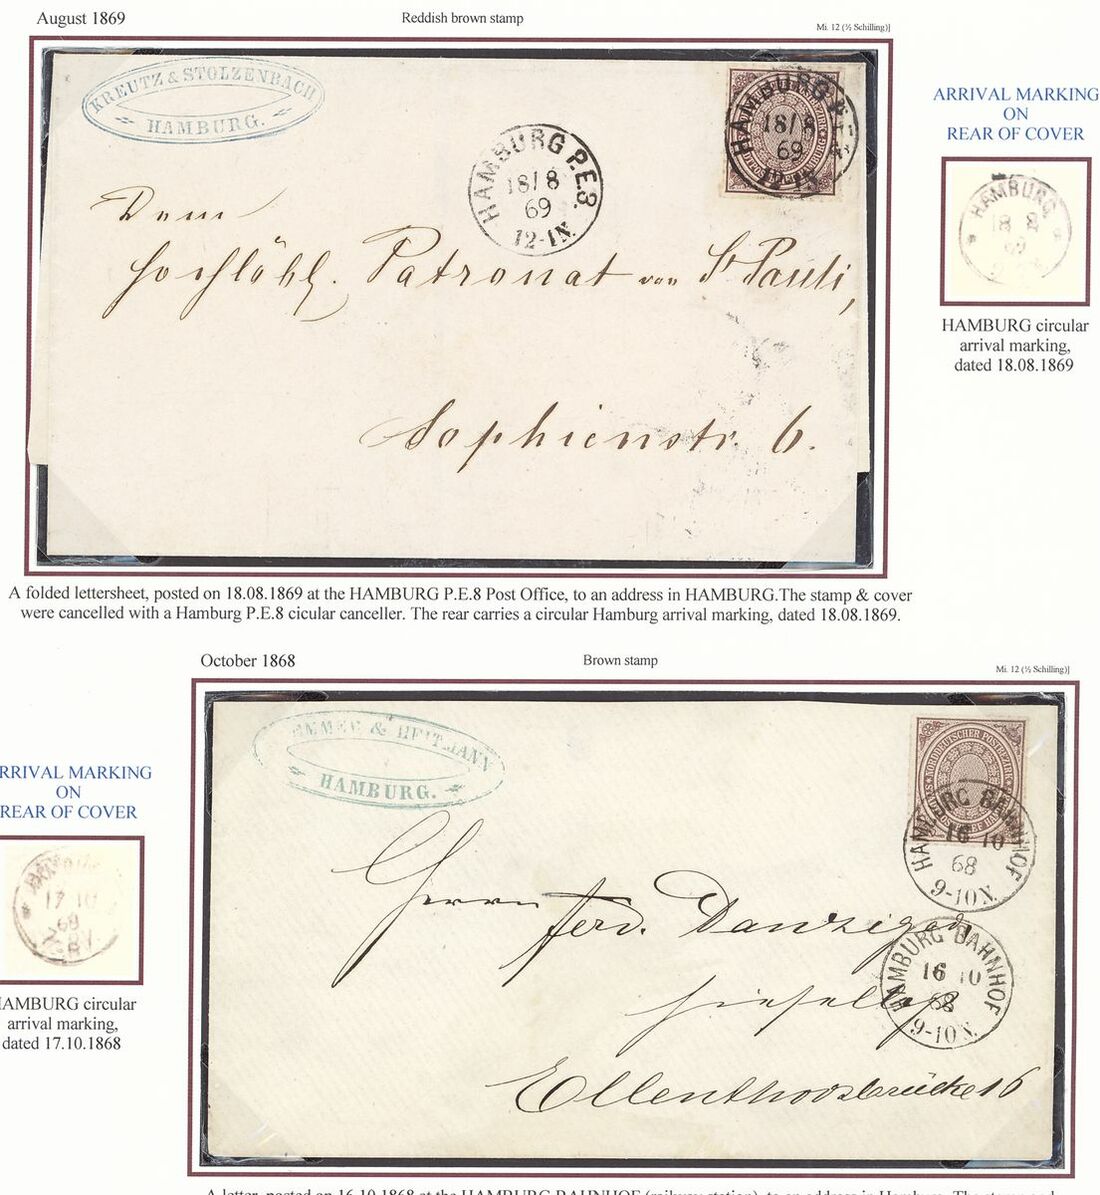 August 1869
Reddish brown stamp
Mi. 12 (½ Schilling)]
KREUTZ & STOLZENBACH
HAMBURG.
HAMBURG P.E.8.
18/8
69
12-1N.
HAMBURG P.E.8.
18/8
69
12-1N.
Dem
Hochlöbl. Patronat von St Pauli,
Sophienstr. 6.
ARRIVAL MARKING
ON
REAR OF COVER
HAMBURG
18 8
69
HAMBURG circular
arrival marking,
dated 18.08.1869
A folded lettersheet, posted on 18.08.1869 at the HAMBURG P.E.8 Post Office, to an address in HAMBURG.The stamp & cover
were cancelled with a Hamburg P.E.8 cicular canceller. The rear carries a circular Hamburg arrival marking, dated 18.08.1869.
October 1868
Brown stamp
Mi. 12 (½ Schilling)]
& HEITMANN
HAMBURG.
NORDDEUTSCHER POSTBEZIRK
HAMBURG BAHNHOF
16 10
68
9-10N.
HAMBURG BAHNHOF
16 10
68
9-10N.
Herrn Ferd. Danziger,
hieselbst
Ellernthorsbrücke 16
RRIVAL MARKING
ON
REAR OF COVER
17 10
68
7-8V.
AMBURG circular
arrival marking,
dated 17.10.1868
A letter, posted on 16.10.1868 at the HAMBURG BAHNHOF (railway station), to an address in Hamburg. The stamp and